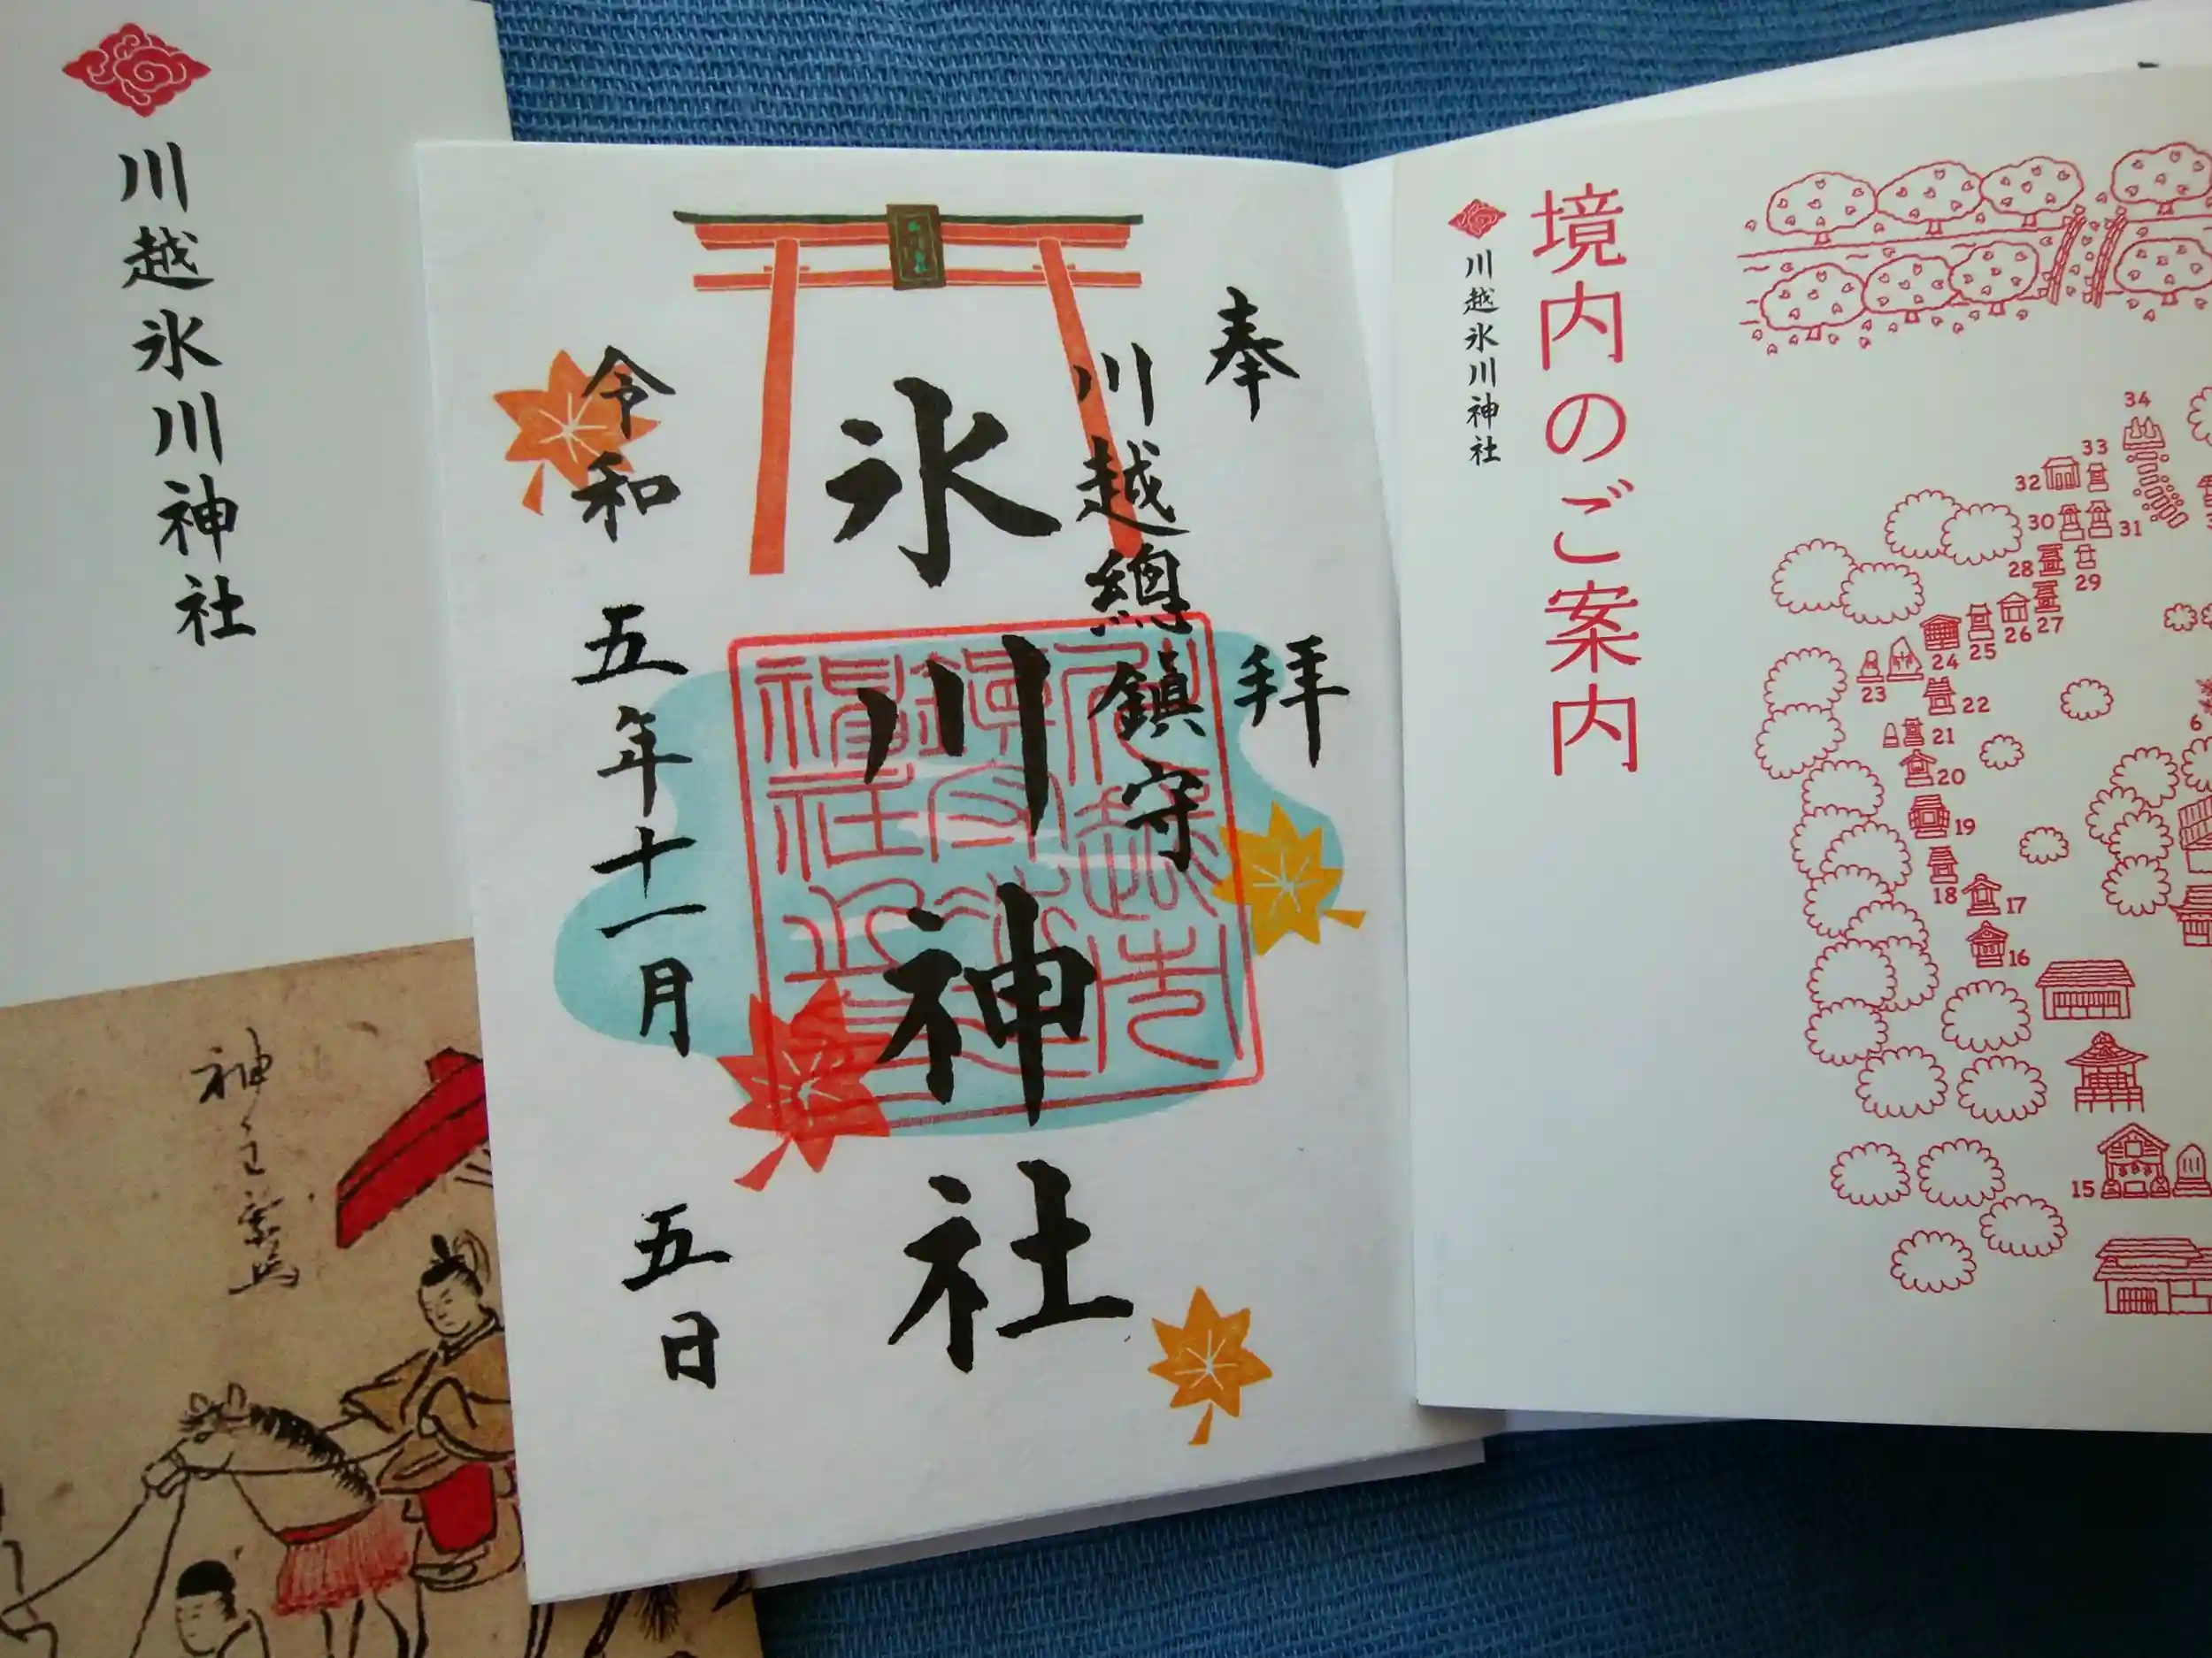 川越氷川神社
神主騎馬
奉拝
川越總鎮守
氷川神社
令和五年十一月五日
境内のご案内
川越氷川神社
34
33
32
30
31
28
29
27
26
25
24
23
22
21
20
19
18
17
16
15
6